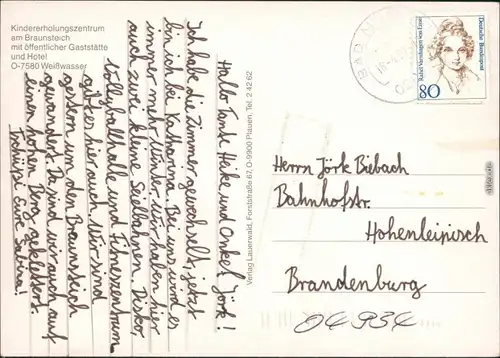 Kindererholungszentrum
am Braunsteich
mit öffentlicher Gaststätte
und Hotel
O-7580 Weißwasser
Hallo Tante Heike und Onkel Jörk!
Ich habe die Zimmer gewechselt, jetzt
bin ich bei Katharina. Bei uns wird es
immer mehr Munter. Wir haben hier
auch zwei kleine Seilbahnen. Disko,
Vollyballhalle und Fitneszentrum
gibt es hier auch. Wir sind
gestern um den Braunsteich
gewandert. Da sind wir auch auf
einen hohen Berg geklettert.
Tschüssi Eure Sabrina!
Verlag Lauerwald, Forststraße 67, O-9900 Plauen, Tel. 2 42 62
BAD M
Deutsche Bundespost
Rahel Varnhagen von Ense
80
Herrn Jörk Biebach
Bahnhofstr.
Hohenleipisch
Brandenburg
04934